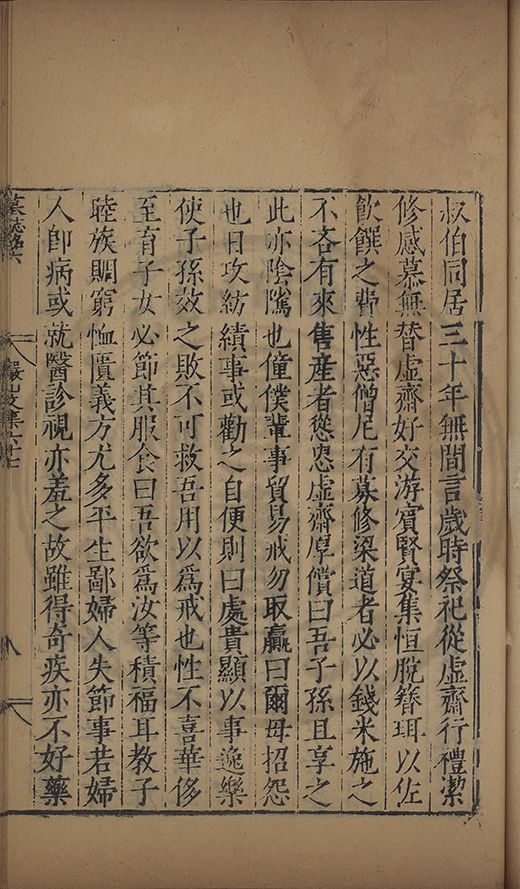 叔伯同居三十年無間言歲時祭祀從虛齋行禮潔
修感慕無替虛齋好交游賓賢宴集恒脫簪珥以佐
飲饌之費性惡僧尼有募修梁道者必以錢米施之
不吝有來售產者慫恿虛齋厚償曰吾子孫且享之
此亦陰隲也僮僕輩事貿易戒勿取贏曰爾毋招怨
也日攻紡績事或勸之自便則曰處貴顯以事逸樂
使子孫效之敗不可救吾用以為戒也性不喜華侈
至育子女必節其服食曰吾欲為汝等積福耳教子
睦族賙窮恤匱義方尤多平生鄙婦人失節事若婦
人卽病或就醫診視亦羞之故雖得奇疾亦不好藥
墓誌銘六
儼山文集六十七
八